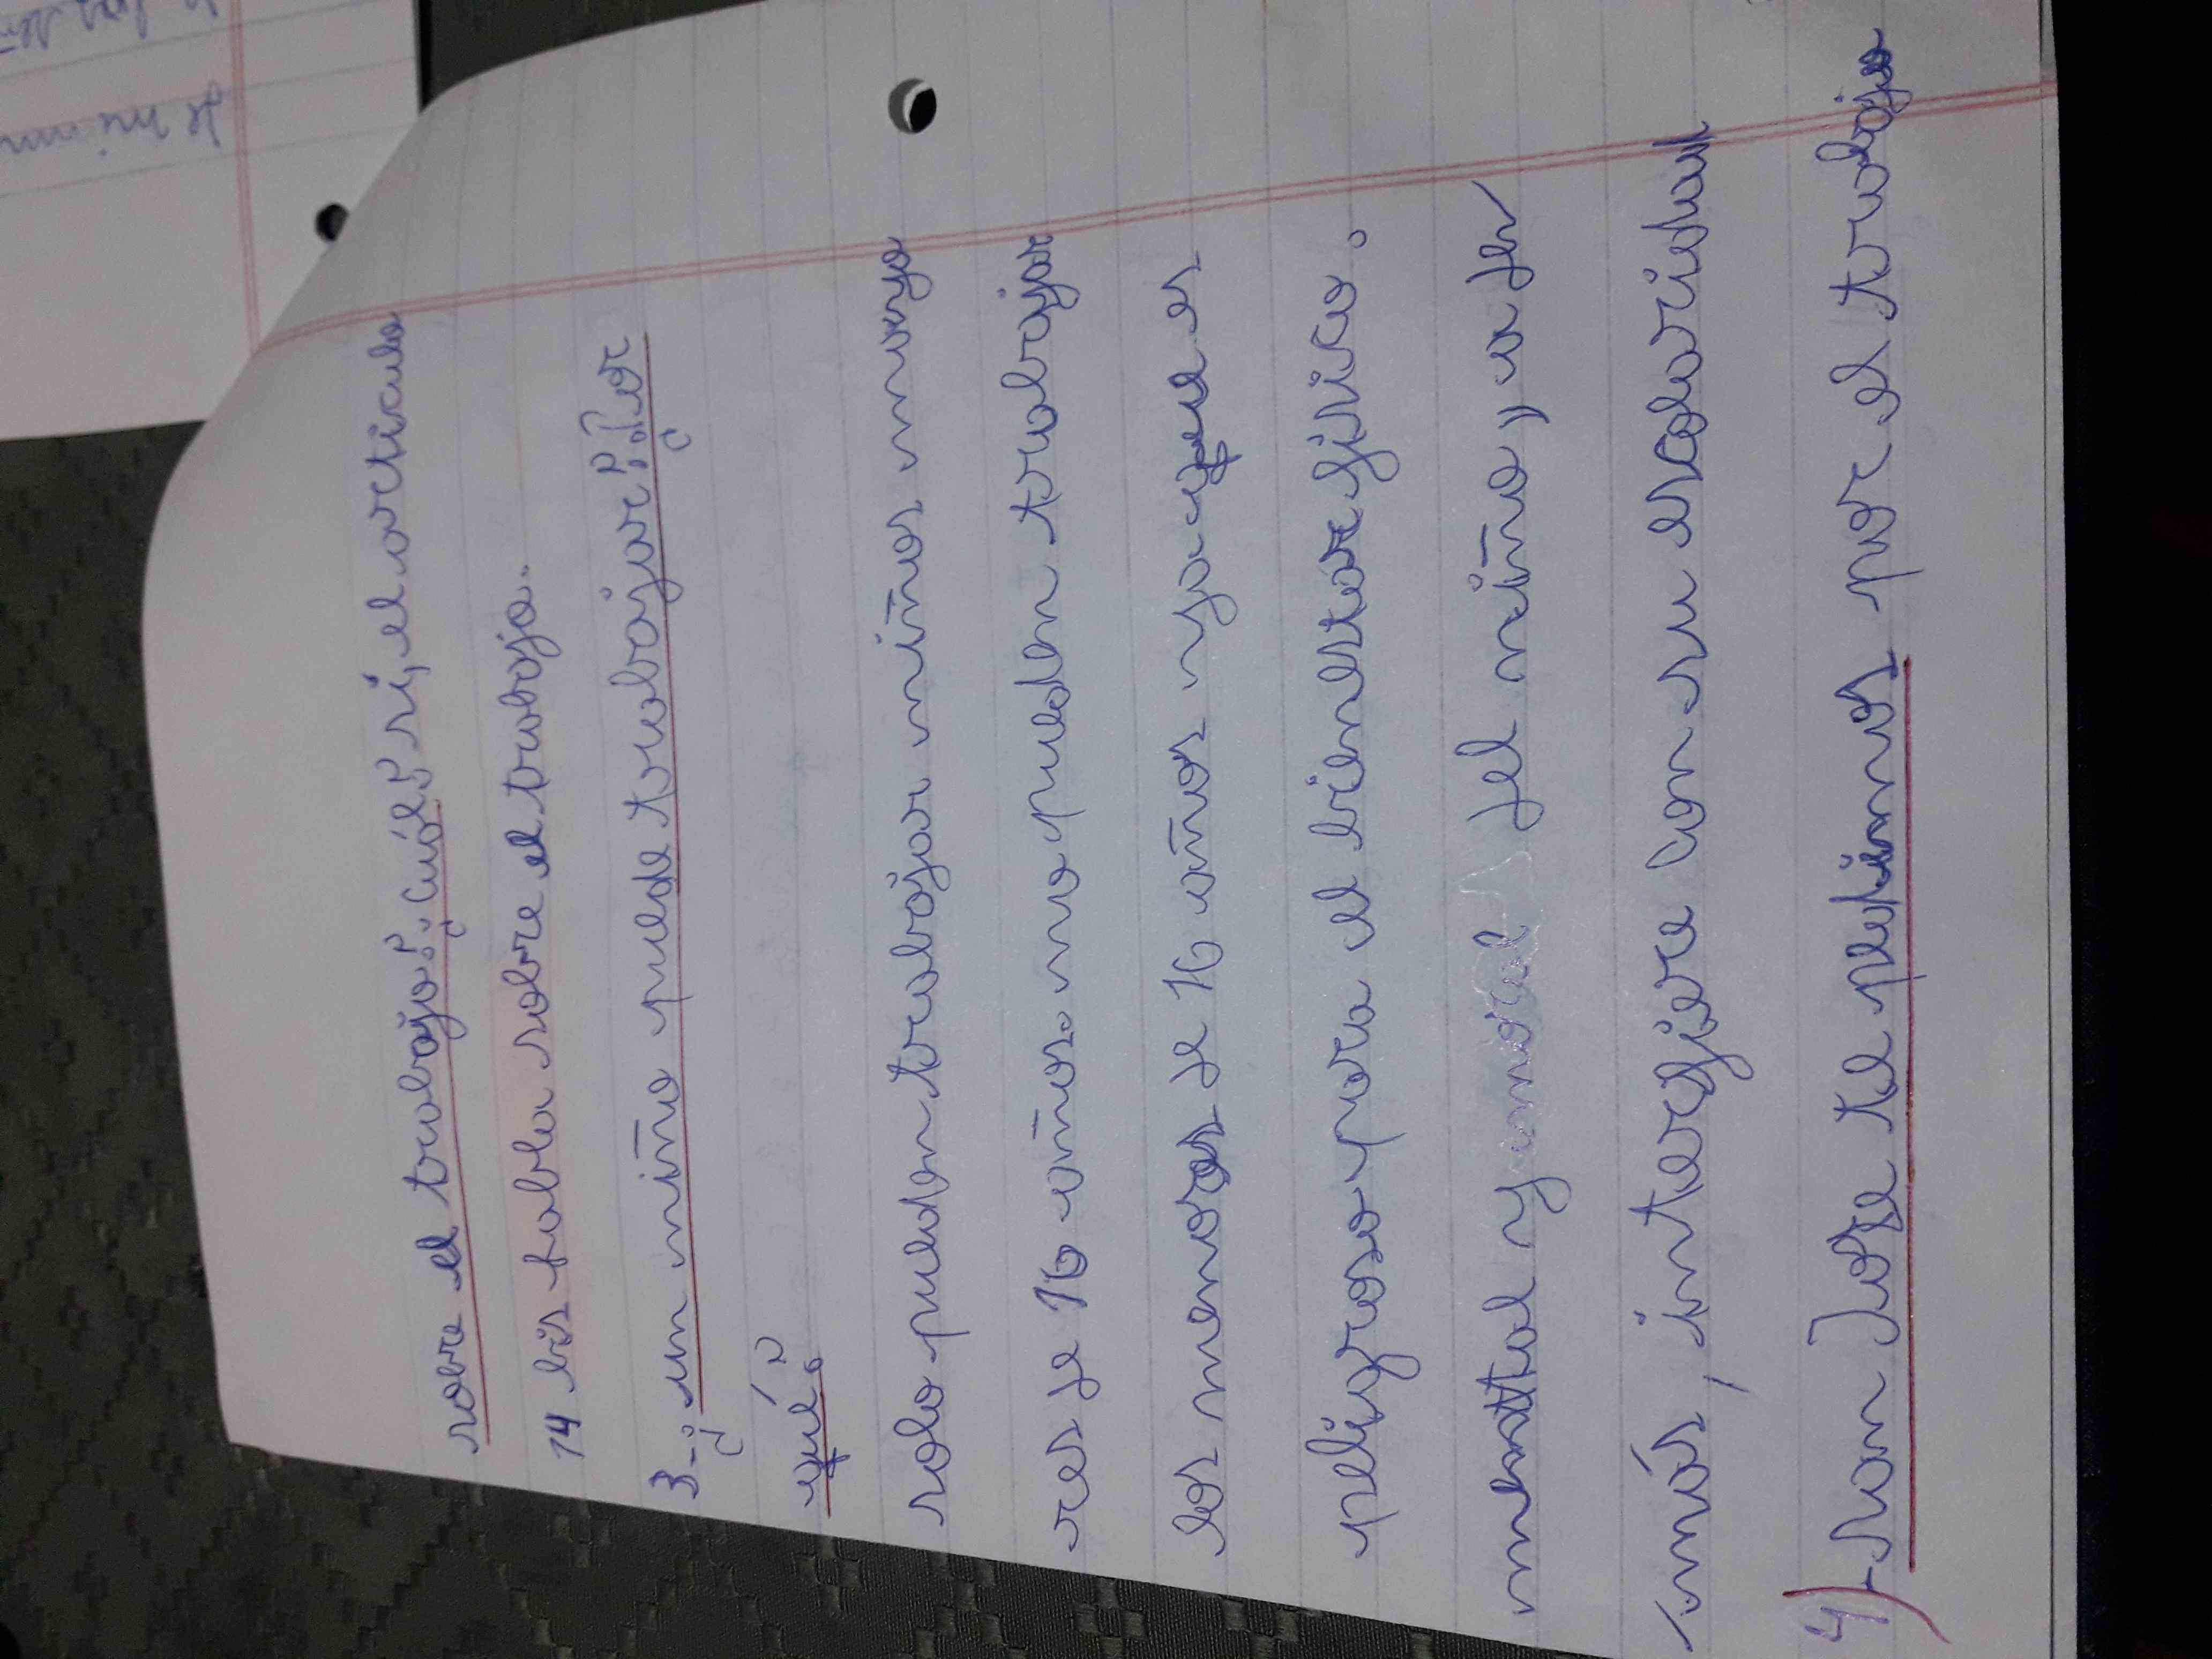 sobre el trabajo?¿Cuál? sí, el articulo
14 bis habla sobre el trabajo.
3-¿un niño puede trabajar?¿Por
qué?
solo pueden trabajar niños mayo
res de 16 años. no pueden trabajar
los menores de 16 años ya que es
peligroso para el bienestar fisico.
mental y moral del niño, a de
más, interfiere con su escolaridad
4)-San Jose te pedimos por el trabajo
de mi